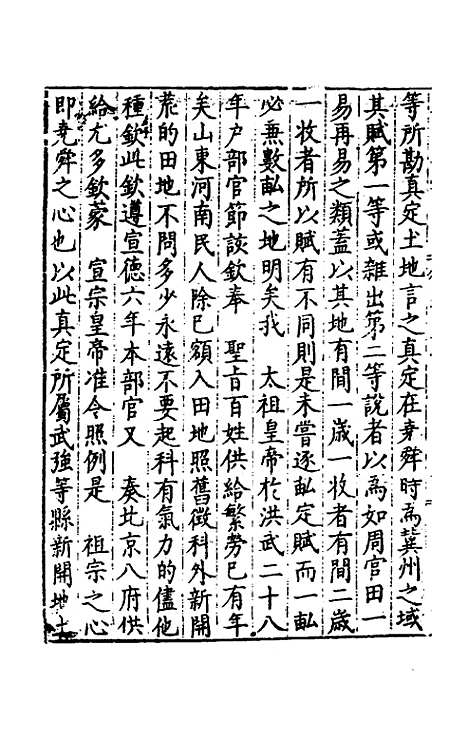 等所勘真定土地言之真定在堯舜時為冀州之域
其賦第一等或雜出第二等說者以為如周官田一
易再易之類蓋以其地有間一歲一收者有間二歲
一收者所以賦有不同則是未嘗逐畝定賦而一畝
必無數畝之地明矣我　太祖皇帝於洪武二十八
年戶部官節該欽奉　聖旨百姓供給繁勞已有年
矣山東河南民人除已額入田地照舊徵科外新開
荒的田地不問多少永遠不要起科有氣力的儘他
種欽此欽遵宣德六年本部官又　奏北京八府供
給尤多欽蒙　宣宗皇帝准令照例是　祖宗之心
即堯舜之心也以此真定所屬武強等縣新開地土